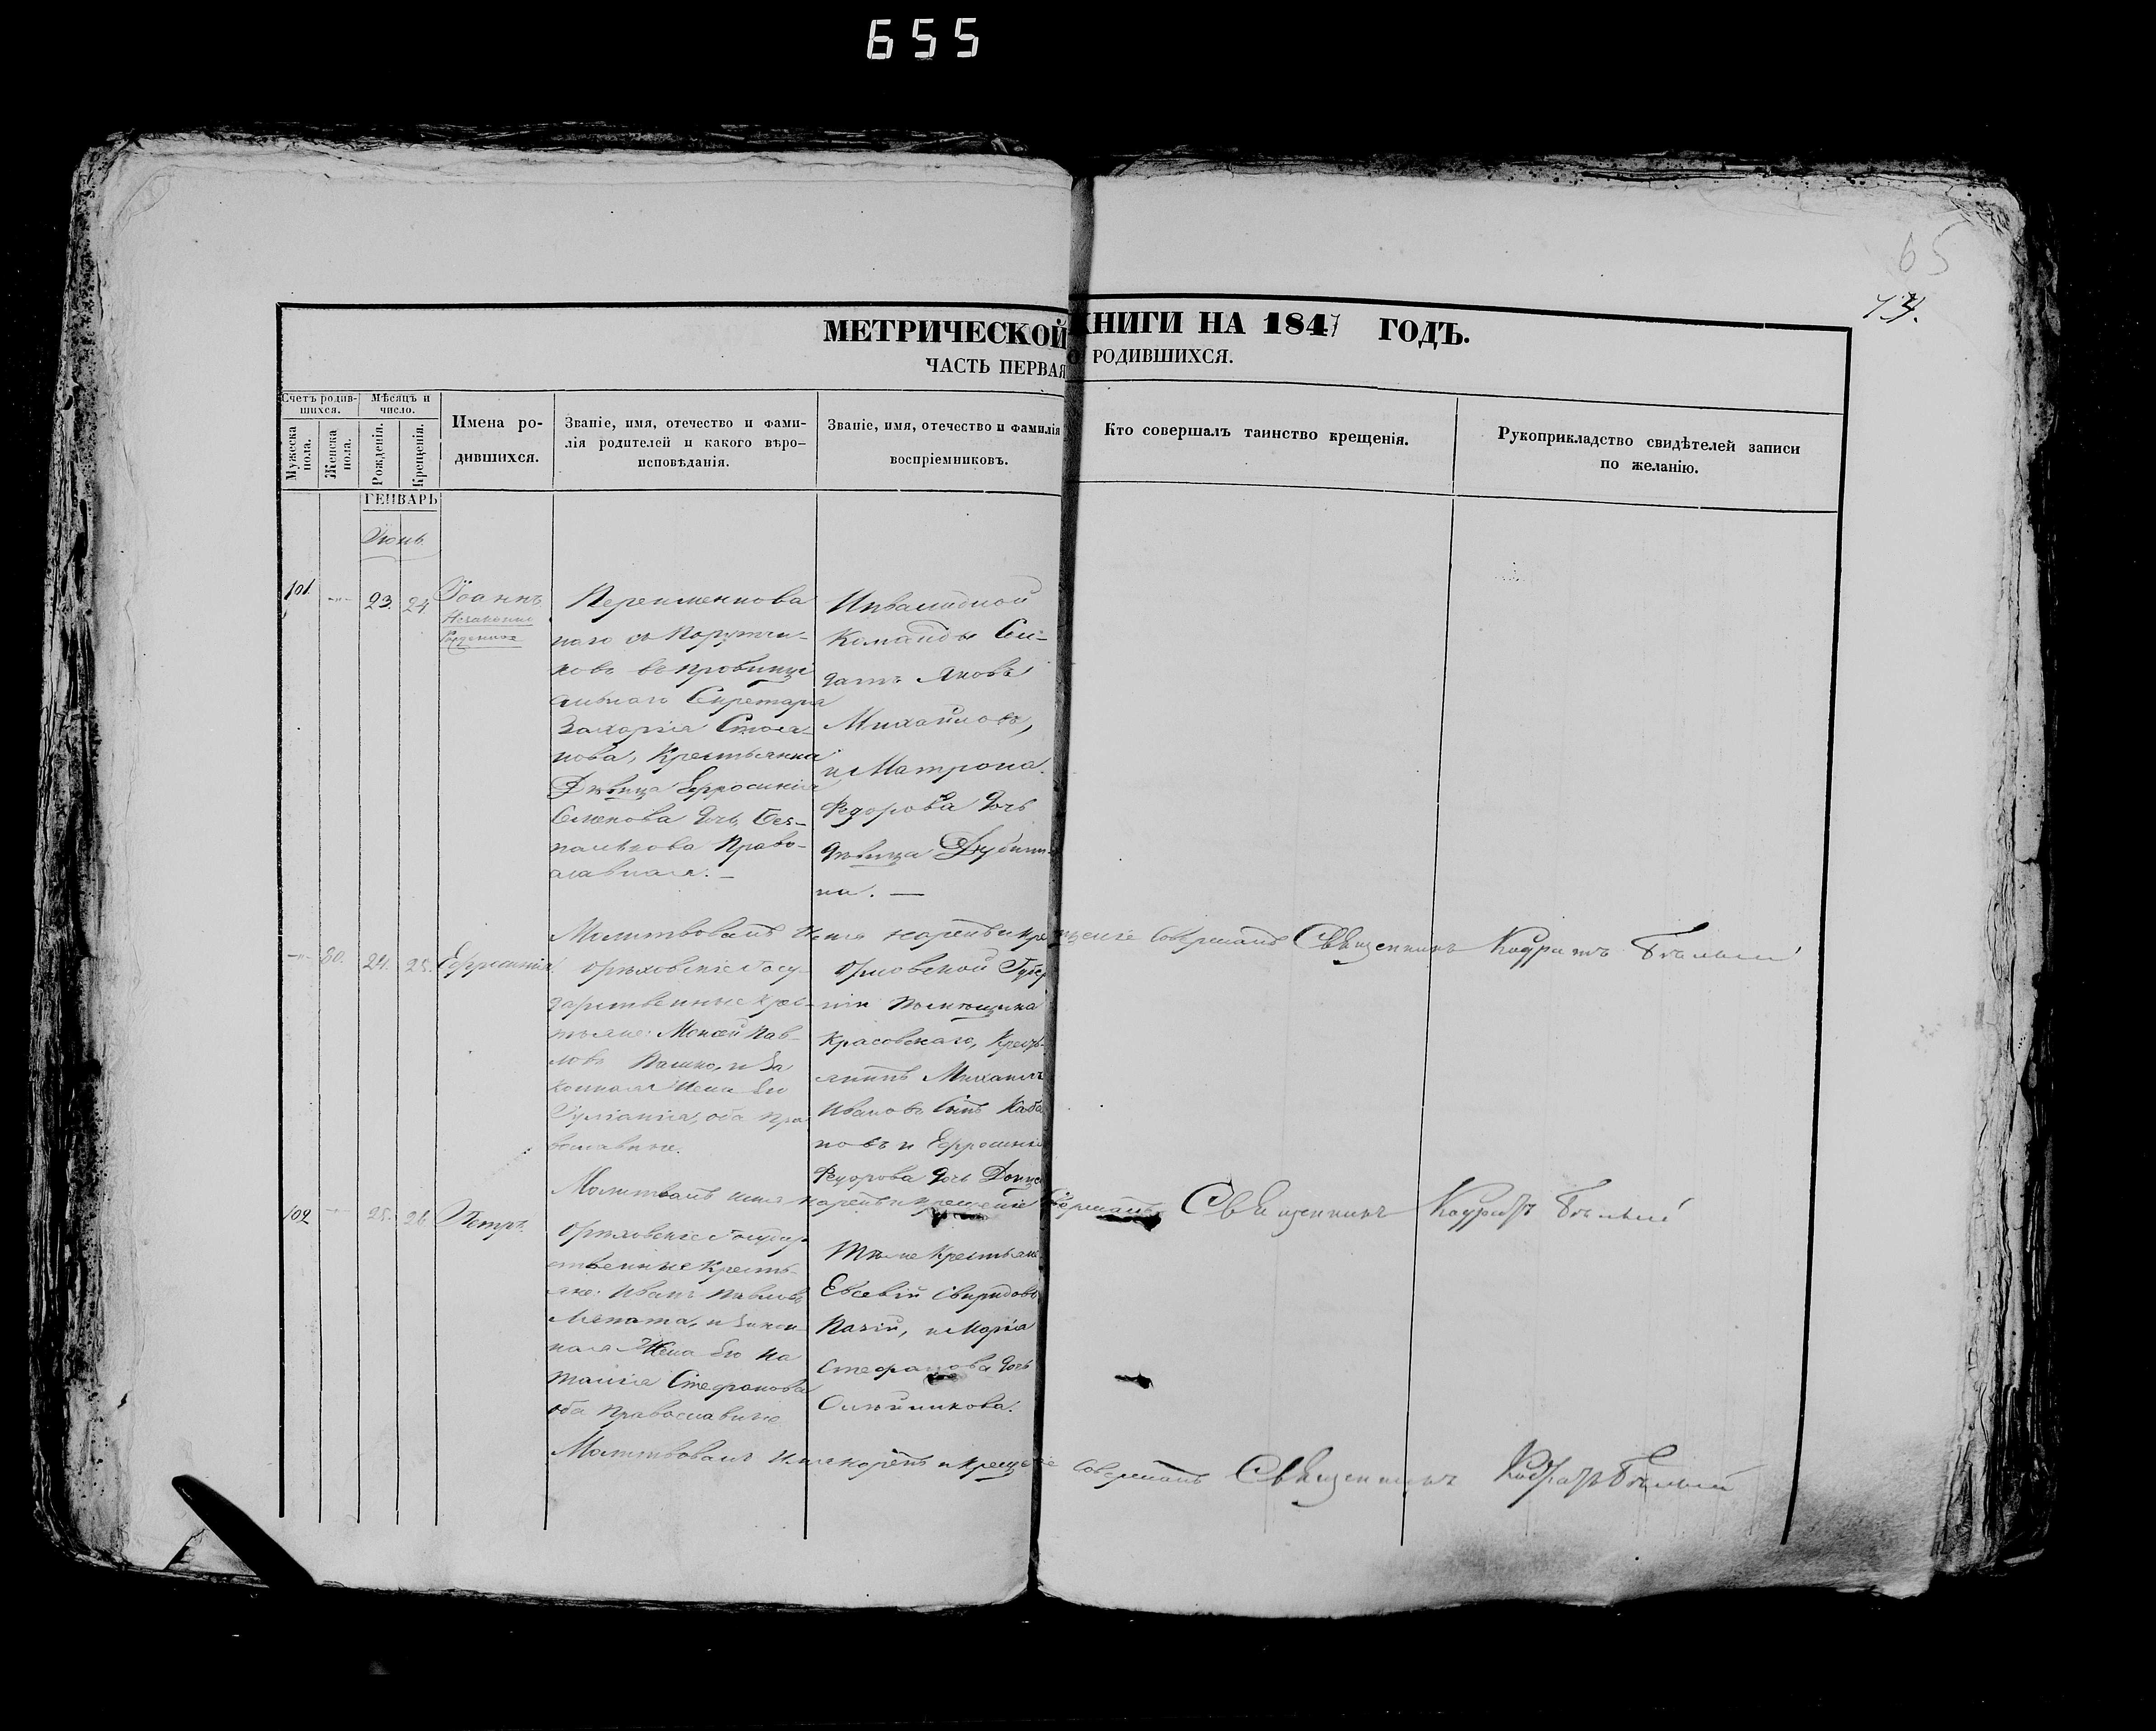 655
65
73.
МЕТРИЧЕСКОЙ КНИГИ НА 1847 ГОДЪ.
ЧАСТЬ ПЕРВАЯ О РОДИВШИХСЯ.
Счетъ родившихся.
Мужеска пола.
Женска пола.
Мѣсяцъ и число.
Рожденія.
Крещенія.
Имена родившихся.
Званіе, имя, отечество и фамилія родителей и какого вѣроисповѣданія.
Званіе, имя, отечество и фамилія воспріемниковъ.
Кто совершалъ таинство крещенія.
Рукоприкладство свидѣтелей записи по желанію.
ГЕНВАРЬ
Іюнь
101. -"- 23. 24 Іоаннъ
Незаконно
Рожденная
Переименова
наго съ Поручи-
ковъ въ провинці
альнаго Секретаря
Захарія Стоя-
нова, Крестьянка
Дѣвица Ефросинія
Семенова дочь,
Право-
славная. —
Инвалидной
Команды Сол-
датъ Яковъ
Михайловъ,
и Матрона
Федорова дочь
дѣвица
на. —
Молитвовалъ Имя нарекъ и крещеніе совершалъ Священникъ Кодратъ Бѣлый
-"- 80. 24. 25. Ефросинія
Орѣховскіе Госу-
дарственные крес-
тьяне: Моисей Пав-
ловъ Пашко, и За
конная Жена Его
Іуліанія, оба пра
вославные.
Орловской Губер
ніи Помѣщика
Красовскаго, Кресть-
янинъ Михаилъ
Ивановъ Сынъ Каба
новъ и Ефросинія
Федорова дочь
Молитвалъ имя нарекъ и крещеніе совершалъ Священникъ Кодратъ Бѣлый
102 -"- 25. 26 Петръ
Орѣховскіе Государ
ственные Кресть-
яне: Иванъ Павловъ
и Закон
ная Жена Его На
талія Стефанова
оба Православные
Тѣже Крестьяне
Евсевій Свиридовъ
и Марія
Стефанова дочь
Олѣйникова.
Молитвовалъ Имя нарекъ и крещеніе совершалъ Священникъ Кодратъ Бѣлый